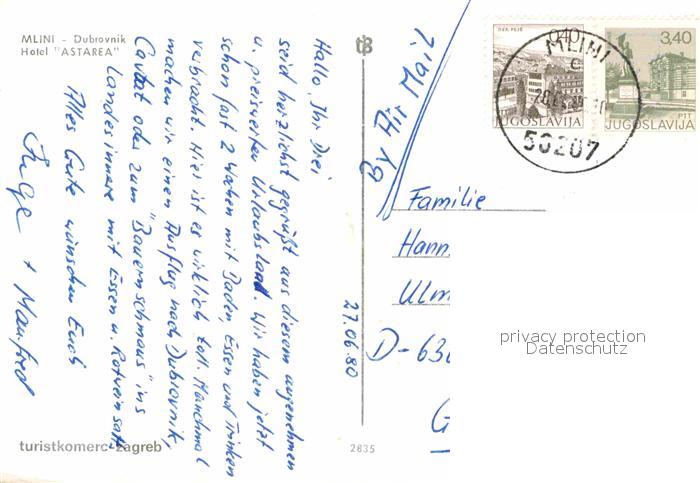 MLINI - Dubrovnik
Hotel "ASTAREA"
Hallo, Ihr Drei
seid herzlichst gegrüßt aus diesem angenehmen
u. preiswerten Urlaubsland. Wir haben jetzt
schon fast 2 Wochen mit Baden, Essen und Trinken
verbracht. Hier ist es wirklich toll. Manchmal
machen wir einen Ausflug nach Dubrovnik,
Cavtat oder zum "Bauernschmaus" ins
Landesinnere mit Essen u. Rotwein satt.
Alles Gute wünschen Euch
Inge + Manfred
27.06.80
By Air Mail
Familie
Hann
Ulm
D-630
G
turistkomerc-zagreb
2835
0,40
JUGOSLAVIJA
3,40
PTT
JUGOSLAVIJA
MLINI
50207
privacy protection
Datenschutz